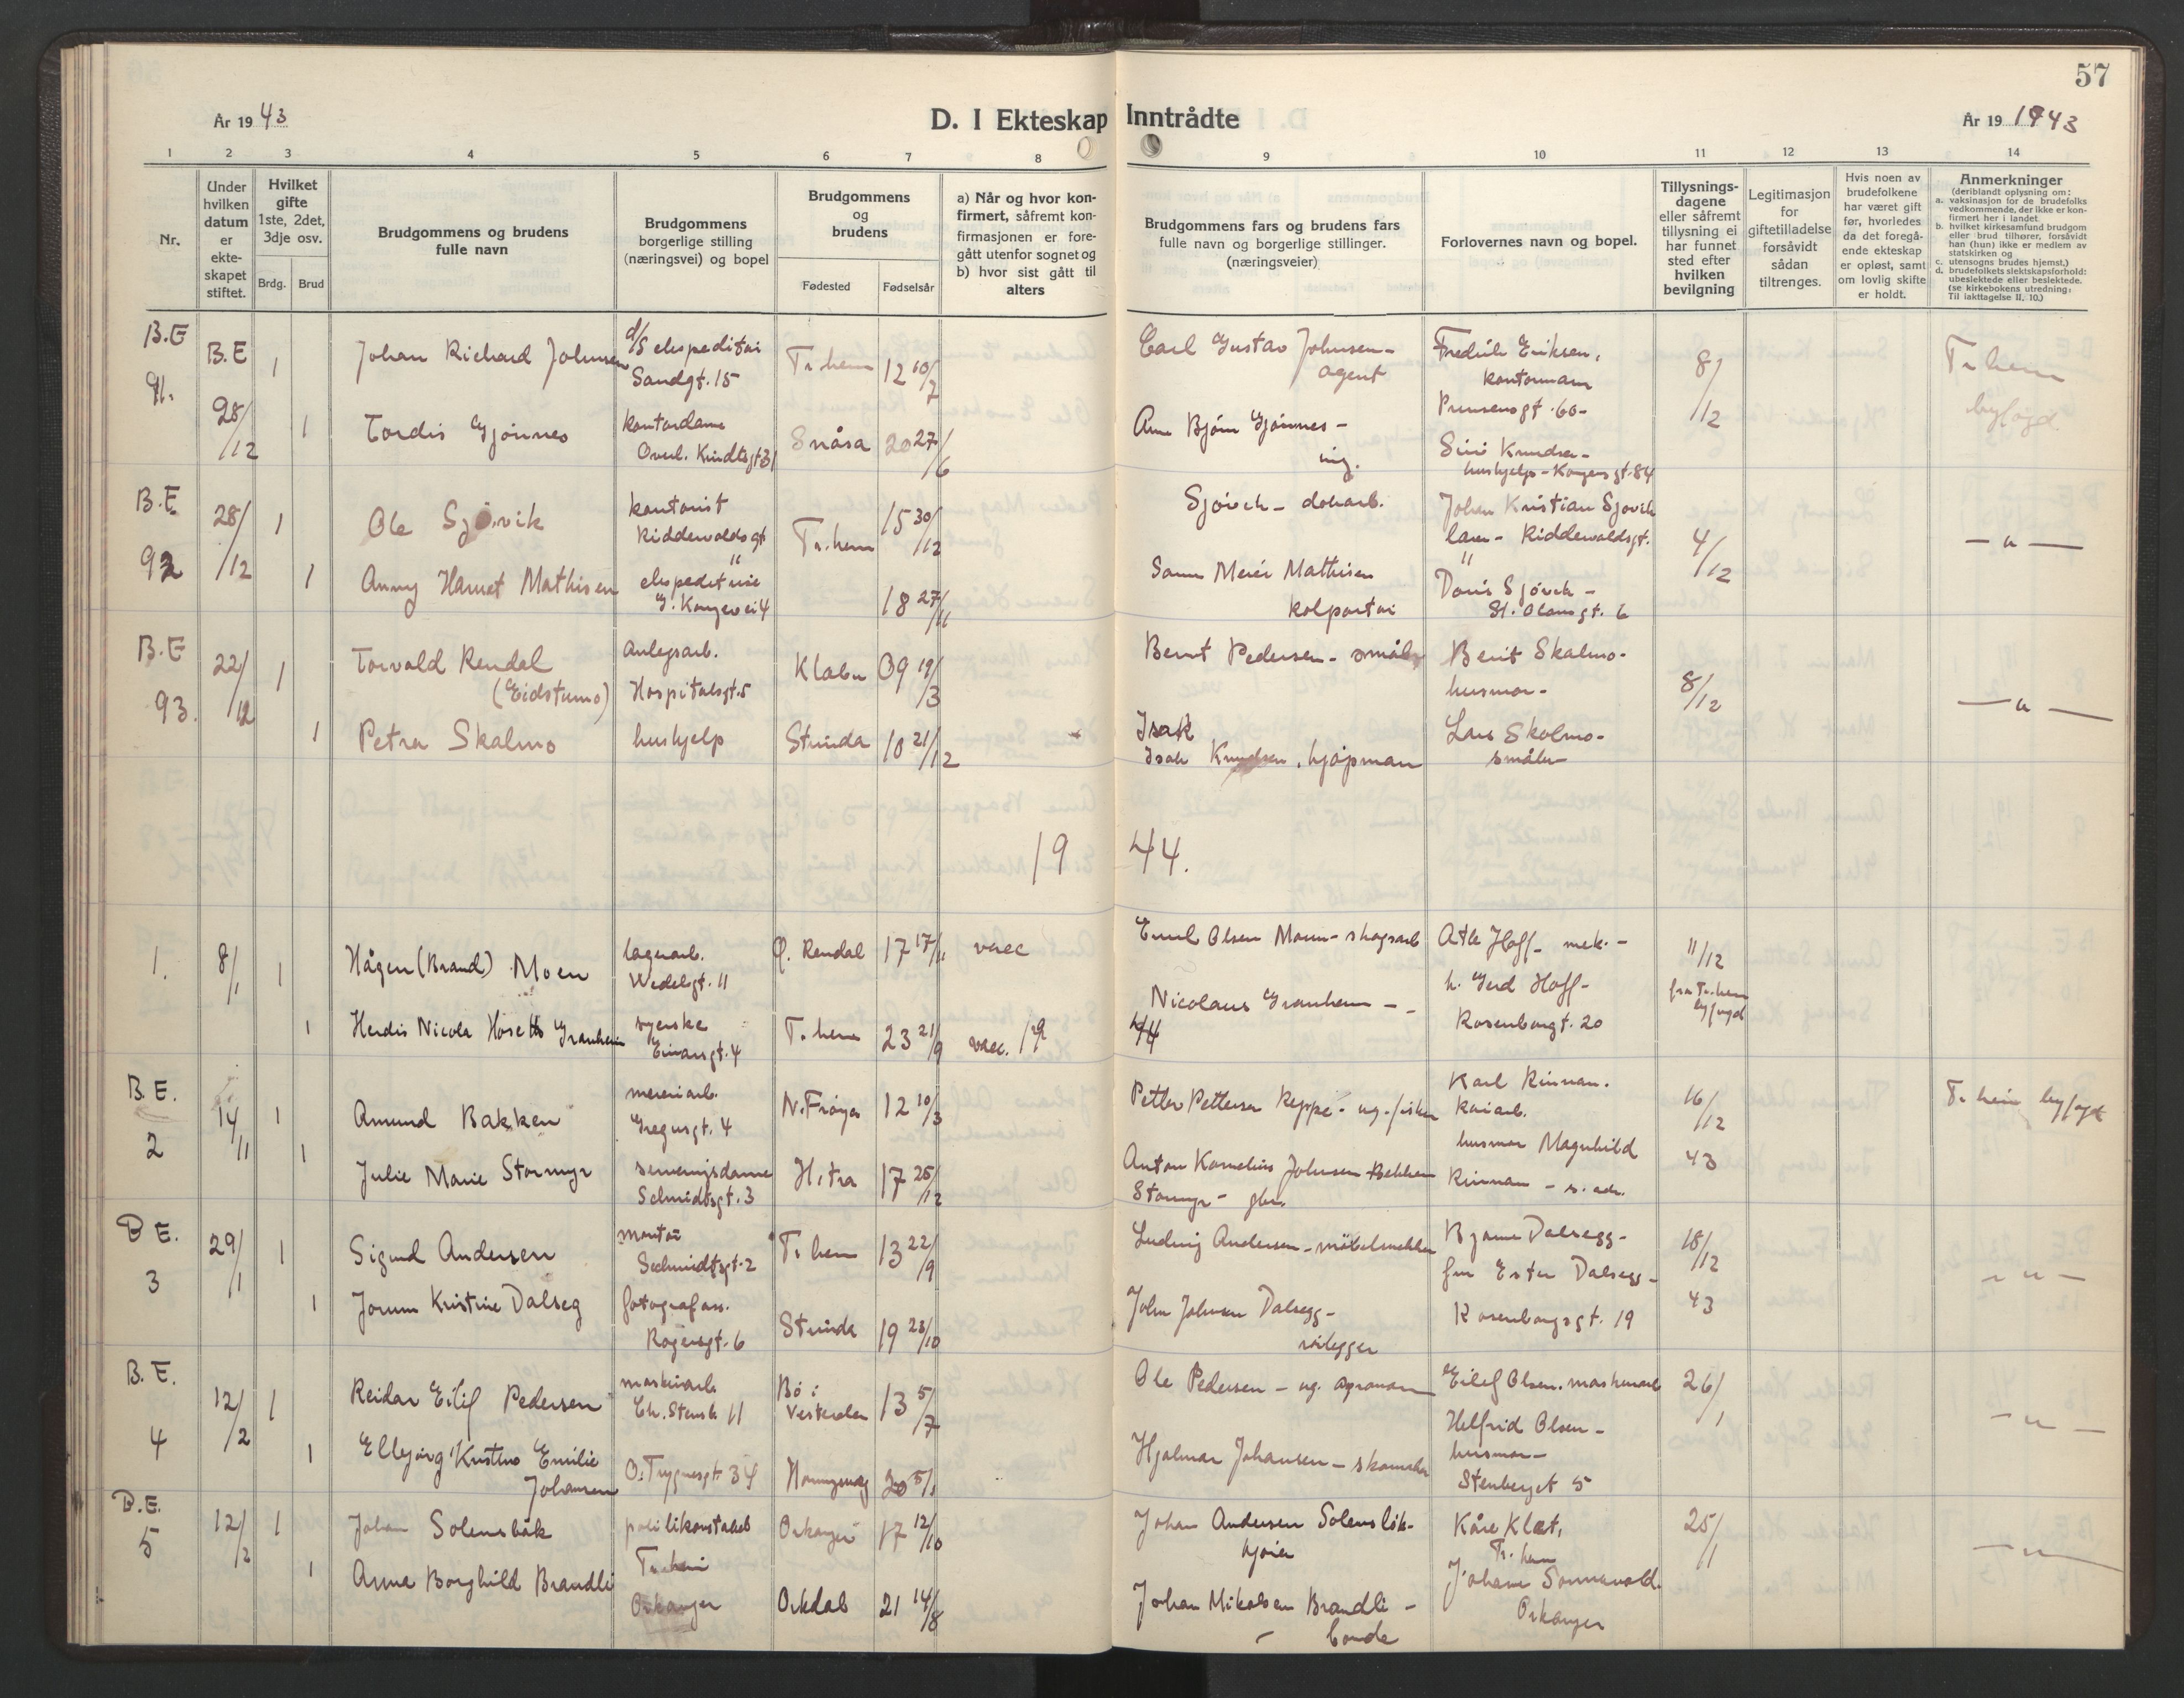 57
År 1943
D. I Ekteskap Inntrådte
År 19 1943
1 2 3 4 5 6 7 8 9 10 11 12 13 14
Nr.
Under hvilken datum er ekte-skapet stiftet.
Hvilket gifte 1ste, 2det, 3dje osv.
Brdg. Brud
Brudgommens og brudens fulle navn
Brudgommens borgerlige stilling (næringsvei) og bopel
Brudgommens og brudens
Fødested Fødselsår
a) Når og hvor kon-firmert, såfremt kon-firmasjonen er fore-gått utenfor sognet og b) hvor sist gått til alters
Brudgommens fars og brudens fars fulle navn og borgerlige stillinger. (næringsveier)
Forlovernes navn og bopel.
Tillysnings-dagene eller såfremt tillysning ei har funnet sted efter hvilken bevilgning
Legitimasjon for giftetilladelse forsåvidt sådan tiltrenges.
Hvis noen av brudefolkene har været gift før, hvorledes da det foregå-ende ekteskap er opløst, samt om lovlig skifte er holdt.
Anmerkninger
(deriblandt oplysning om:
a. vaksinasjon for de brudefolks vedkommende, der ikke er kon-firmert her i landet.
b. hvilket kirkesamfund brudgom eller brud tilhører, forsåvidt han (hun) ikke er medlem av statskirken og
c. utensogns brudes hjemst.)
d. brudefolkets slektskapsforhold: ubeslektede eller beslektede. (se kirkebokens utredning: Til iakttagelse II, 10.)
B.E 91. B.E 28/12 1 Johan Richard Johnsen d/s ekspeditør Sandgt. 15 Tr.hem 12 10/7 Carl Gustav Johnsen - agent Fredrik Eriksen, kontormann Prinsensgt. 60 - 8/12 Tr.hem byfogd
1 Tordis Gjönnes kontordame Overl. Kindtsgt 31 Snåsa 20 27/6 Arne Bjørn Gjønnes - ing. Siri Knudsen - hushjelp - Kongensgt. 84
B.E. 92 28/12 1 Ole Sjøvik kontorist Riddervoldsgt 11 Tr.hem 15 30/12 Sjøvik - Johan Kristian Sjøvik Riddervoldsgt. 11 4/12 - " -
1 Anny Mathisen ekspeditrise 18 27/11 Mathisen kolportør Doris Sjøvik - St. Olavsgt. 6
B.E 93. 22/12 1 Torvald Rendal (Eidstumo) Anlegsarb. Hospitalsgt. 5 Klæbu 09 19/3 Bernt Pedersen - småbr Berit Skalmo - husmor - 8/12 - " -
1 Petra Skalmo hushjelp Strinda 10 21/12 Isak Isak Knudsen, kjøpman Lars Skalmo - småbr
19 44.
1. 8/1 1 Hågen (Brand) Moen lagerarb. Wedelsgt. 11 Ø. Rendal 17 17/11 vacc Emil Olsen Moen - skogsarb Atle Hoff - mek. - 11/12 fra Tr.hem byfogd
1 Herdis Nicola Granheim syerske Einarsgt. 4 Tr.hem 23 21/9 vacc. 19 44 Nicolaus Granheim - h. Gerd Hoff - Rosenborgt. 20
B.E. 2 14/11 1 Amund Bakken meieriarb. Gregusgt. 4 N. Frøya 12 10/3 Petter Pettersen Reppe - og fisker Karl Rinnan. kaiarb. 16/12 43 Tr.heim byfogd
1 Julie Marie Stormyr serveringsdame Schmidtsgt. 3 Hitra 17 25/12 Anton Kornelius Johnsen Stormyr - gbr. husmor Magnhild Rinnan - s. adr.
B E. 3 29/1 1 Sigurd Andersen montør Schmidtsgt. 2 Tr hem 13 22/9 Ludvig Andersen - møbelsnekker Bjarne Dalsegg - fru Ester Dalsegg - 18/12 43 - " -
1 Jorunn Kristine Dalseg fotografass. Rogersgt. 6 Strinda 19 23/10 John Johnsen Dalsegg - rørlegger Rosenborgsgt. 19
B.E. 4 12/2 1 Reidar Eilif Pedersen maskinarb Bø i Vesterålen 13 5/7 Ole Pedersen - Eilef Olsen. maskinarb 26/1 - " -
1 Ellbjørg Emilie Johansen O. Trygvesgt. 34 Honningsvåg 20 5/1 Hjalmar Johansen - skomaker Helfrid Olsen - husmor - Stenberget 5
B.E. 5 12/2 1 Johan Solensbåk politikonstabel Tr.heim Orkanger 17 12/10 Johan Andersen Kåre Klæt, Tr. hem 25/1 - " -
1 Anna Borghild Brandli Orkanger Orkdal 21 14/8 Johan Mikalsen Brandli - bonde Johane Sommervold. Orkanger